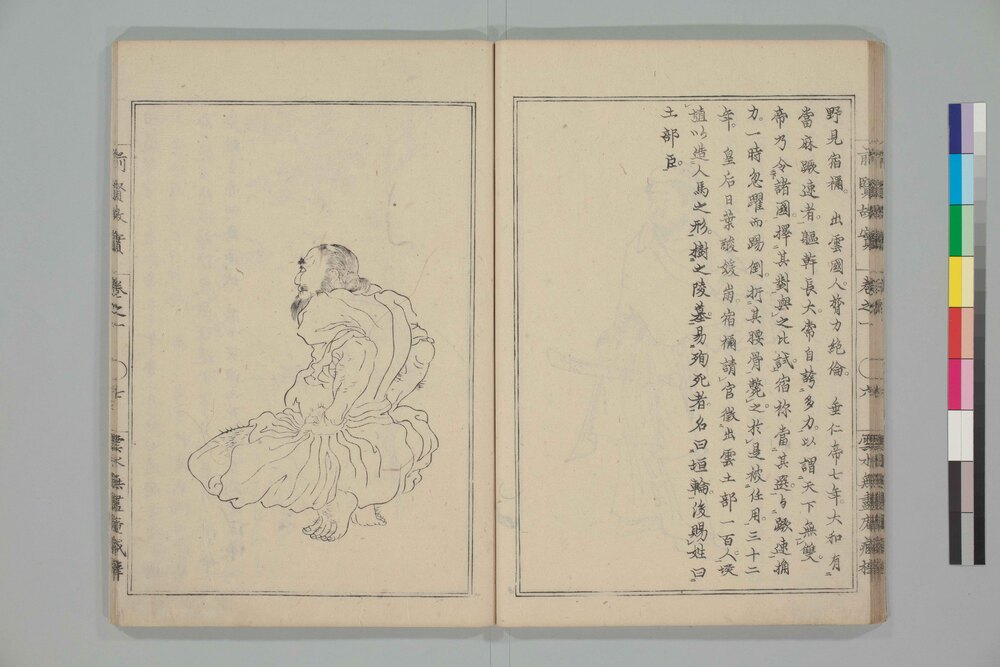 野見宿禰。 出雲國人。膂力絶倫。 垂仁帝七年。大和有
當麻蹶速者。軀幹長大。常自誇多力。以謂天下無雙。
帝乃令諸國擇其對與之比試。宿祢當其選。与蹶速捔
力。一時忽躍而踢倒。折其腰骨。斃之。於是被任用。三十二
年。 皇后日葉酸媛崩。宿禰請官徵出雲土部一百人。埏
埴以造人馬之形。樹之陵墓。易殉死者。名曰垣輪。後賜姓曰
土部臣。
前賢故實 卷之一 六
前賢故實 卷之一 七